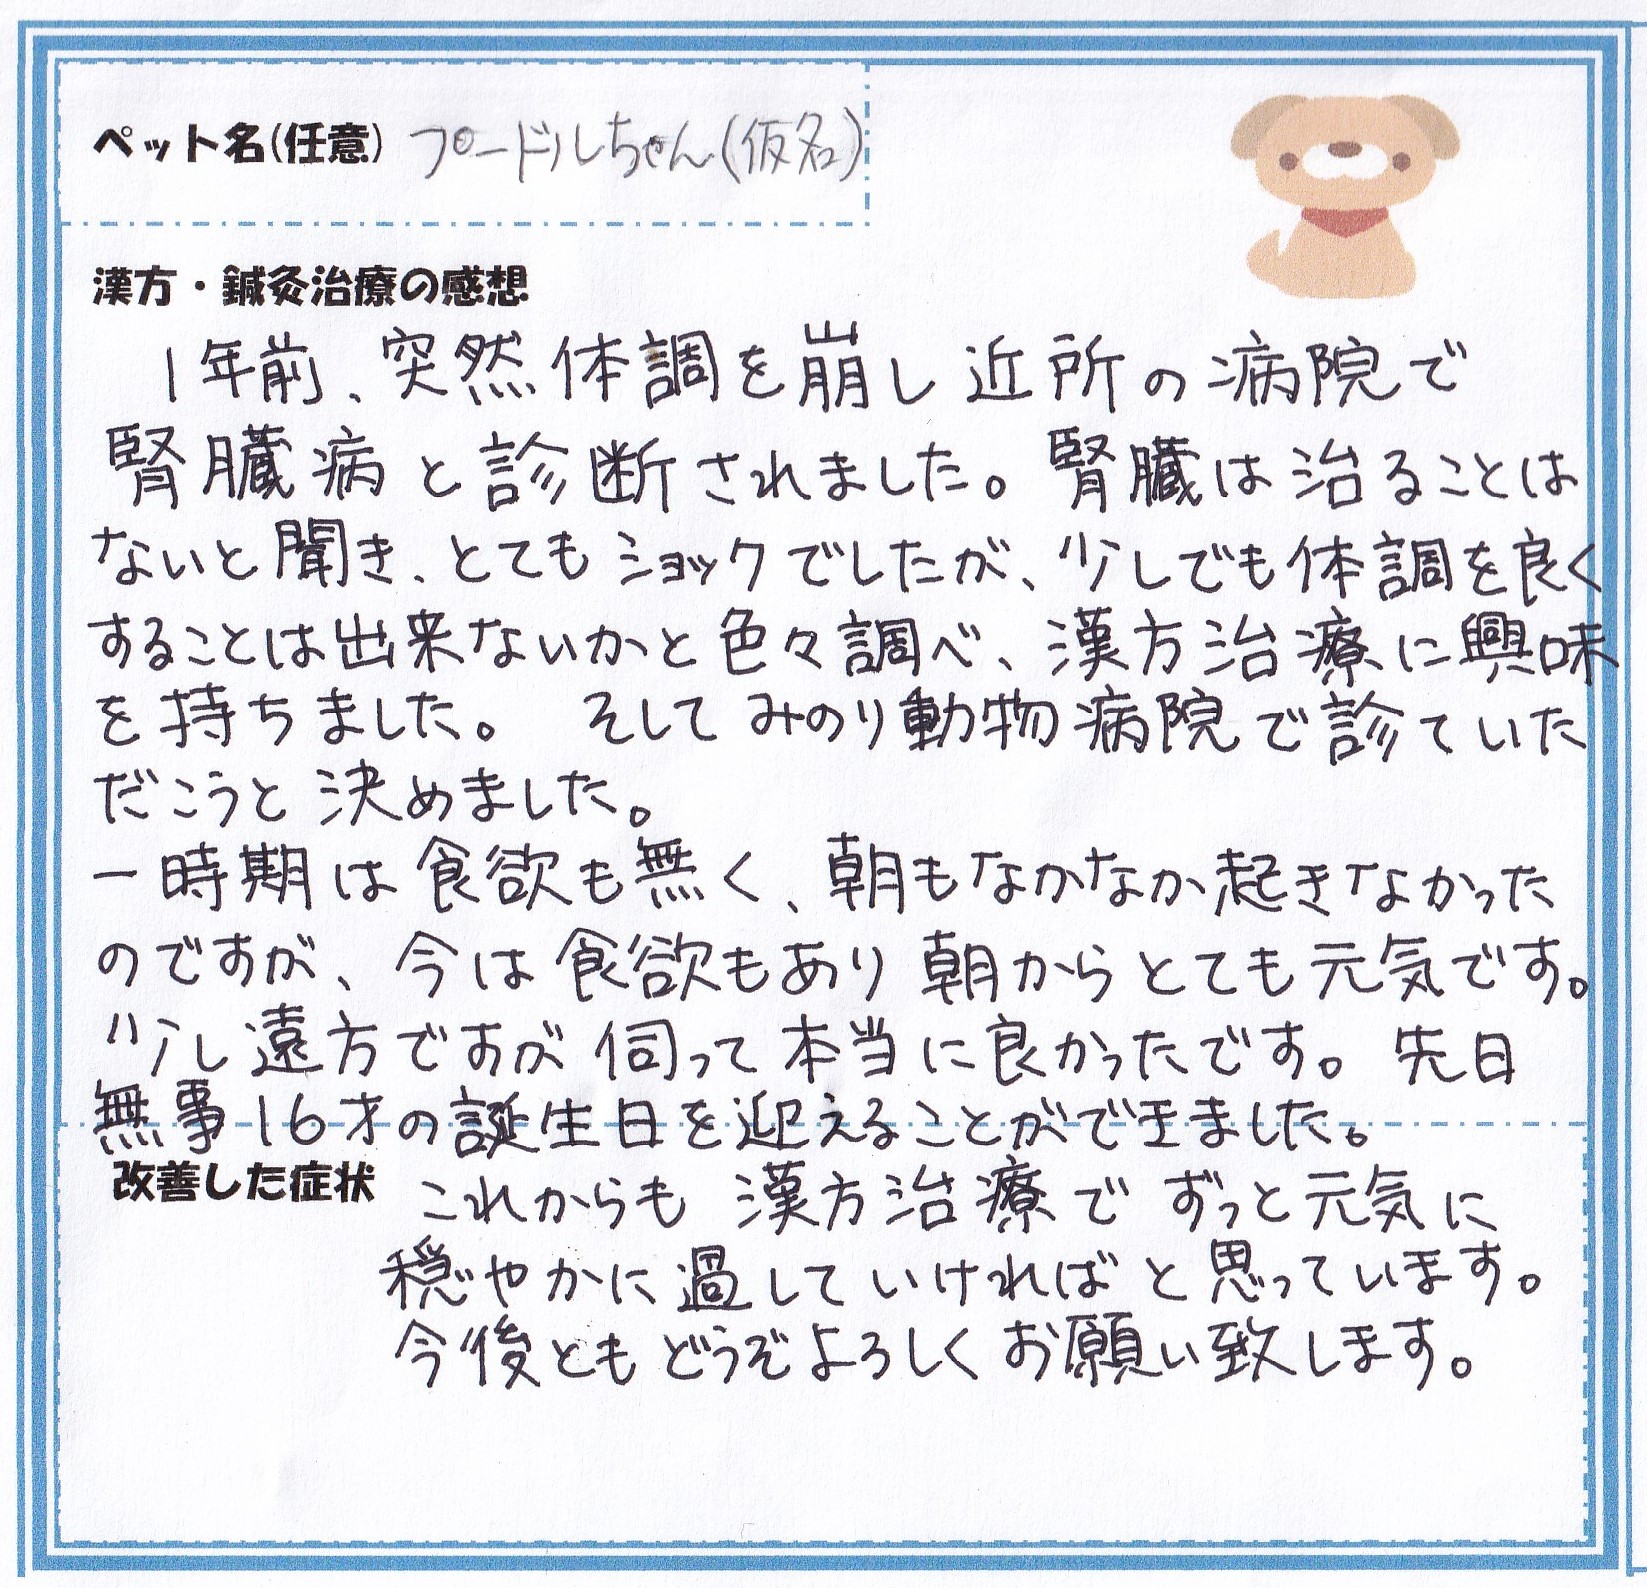 ペット名(任意) プードルちゃん(仮名)
漢方・鍼灸治療の感想
1年前、突然体調を崩し近所の病院で
腎臓病と診断されました。腎臓は治ることは
ないと聞き、とてもショックでしたが、少しでも体調を良く
することは出来ないかと色々調べ、漢方治療に興味
を持ちました。 そしてみのり動物病院で診ていた
だこうと決めました。
一時期は食欲も無く、朝もなかなか起きなかった
のですが、今は食欲もあり朝からとても元気です。
少し遠方ですが伺って本当に良かったです。先日
無事16才の誕生日を迎えることができました。
改善した症状 これからも漢方治療でずっと元気に
穏やかに過していければと思っています。
今後ともどうぞよろしくお願い致します。